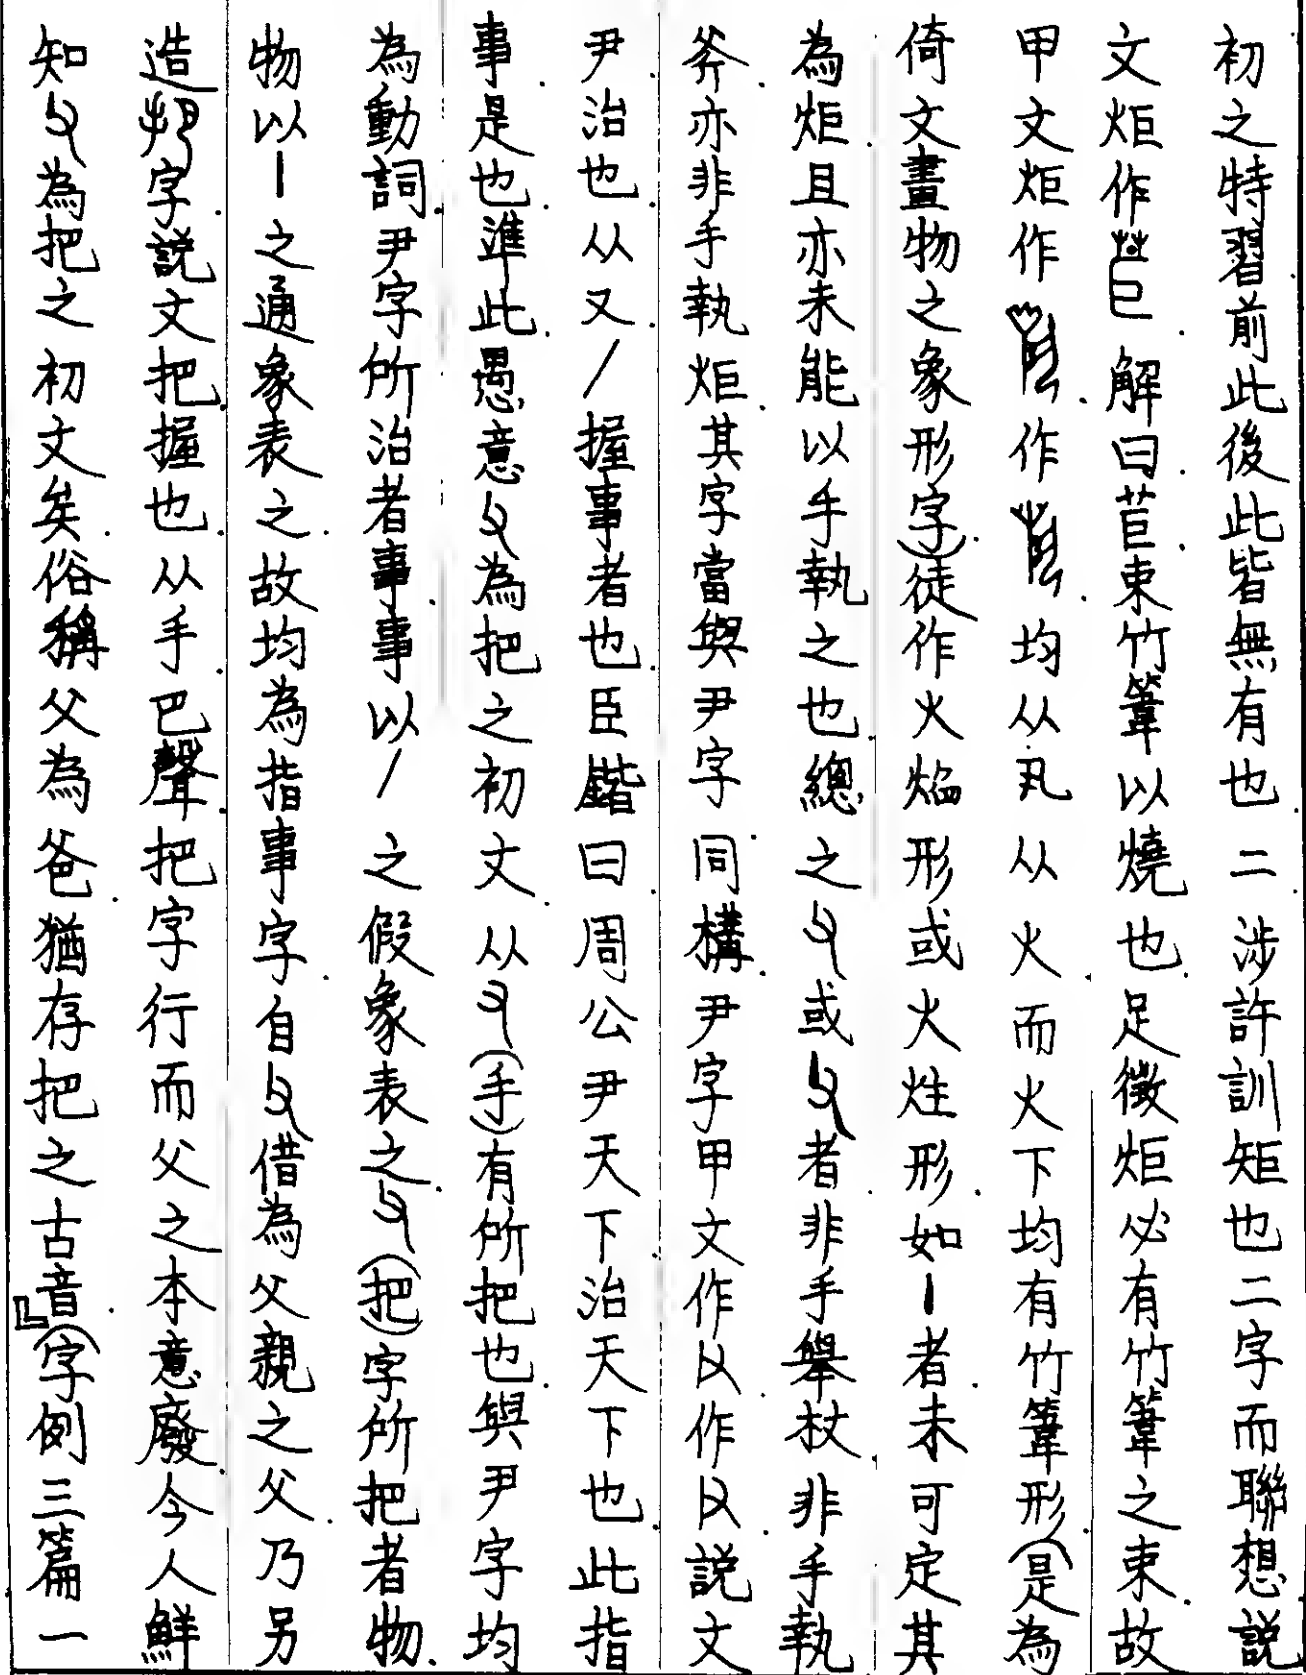 初之特習前此後此皆無有也二涉許訓矩也二字而聯想説
文炬作苣解曰.苣.束竹篿以燒也.足徵炬必有竹篿之束.故
甲文炬作.作.均从丮从火而火下均有竹篿形.(是為
倚文畫物之象形字.)徒作火焰形或火炷形.如丨者.未可定其
為炬.且亦未能以手執之也.總之或者非手舉杖.非手執
斧.亦非手執炬.其字當與尹字同構.尹字甲文作作.説文
尹.治也.从又.丿握事者也.臣鍇曰.周公尹天下.治天下也.此指
事是也.準此.愚意為把之初文.从(手)有所把也.與尹字均
為動詞.尹字所治者事.事以丿之假象表之.(把)字所把者物.
物以丨之通象表之.故均為指事字.自借為父親之父.乃另
造字.説文把.握也.从手巴聲.把字行而父之本意廢.今人鮮
知為把之初文矣.俗稱父為爸.猶存把之古音.』(字例三篇一